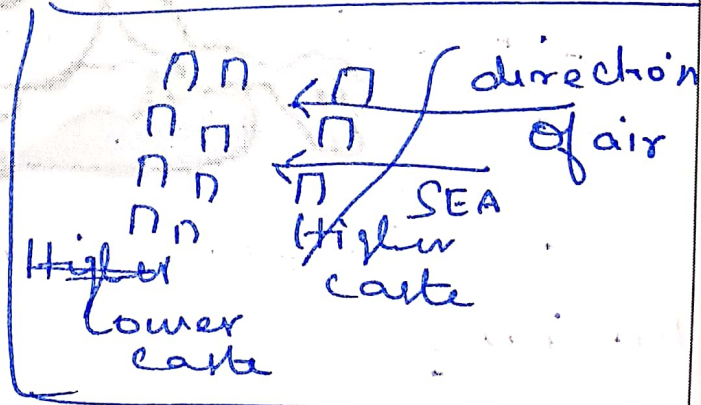 direction
Of air
SEA
Higher
caste
~~Higher~~
Lower
caste